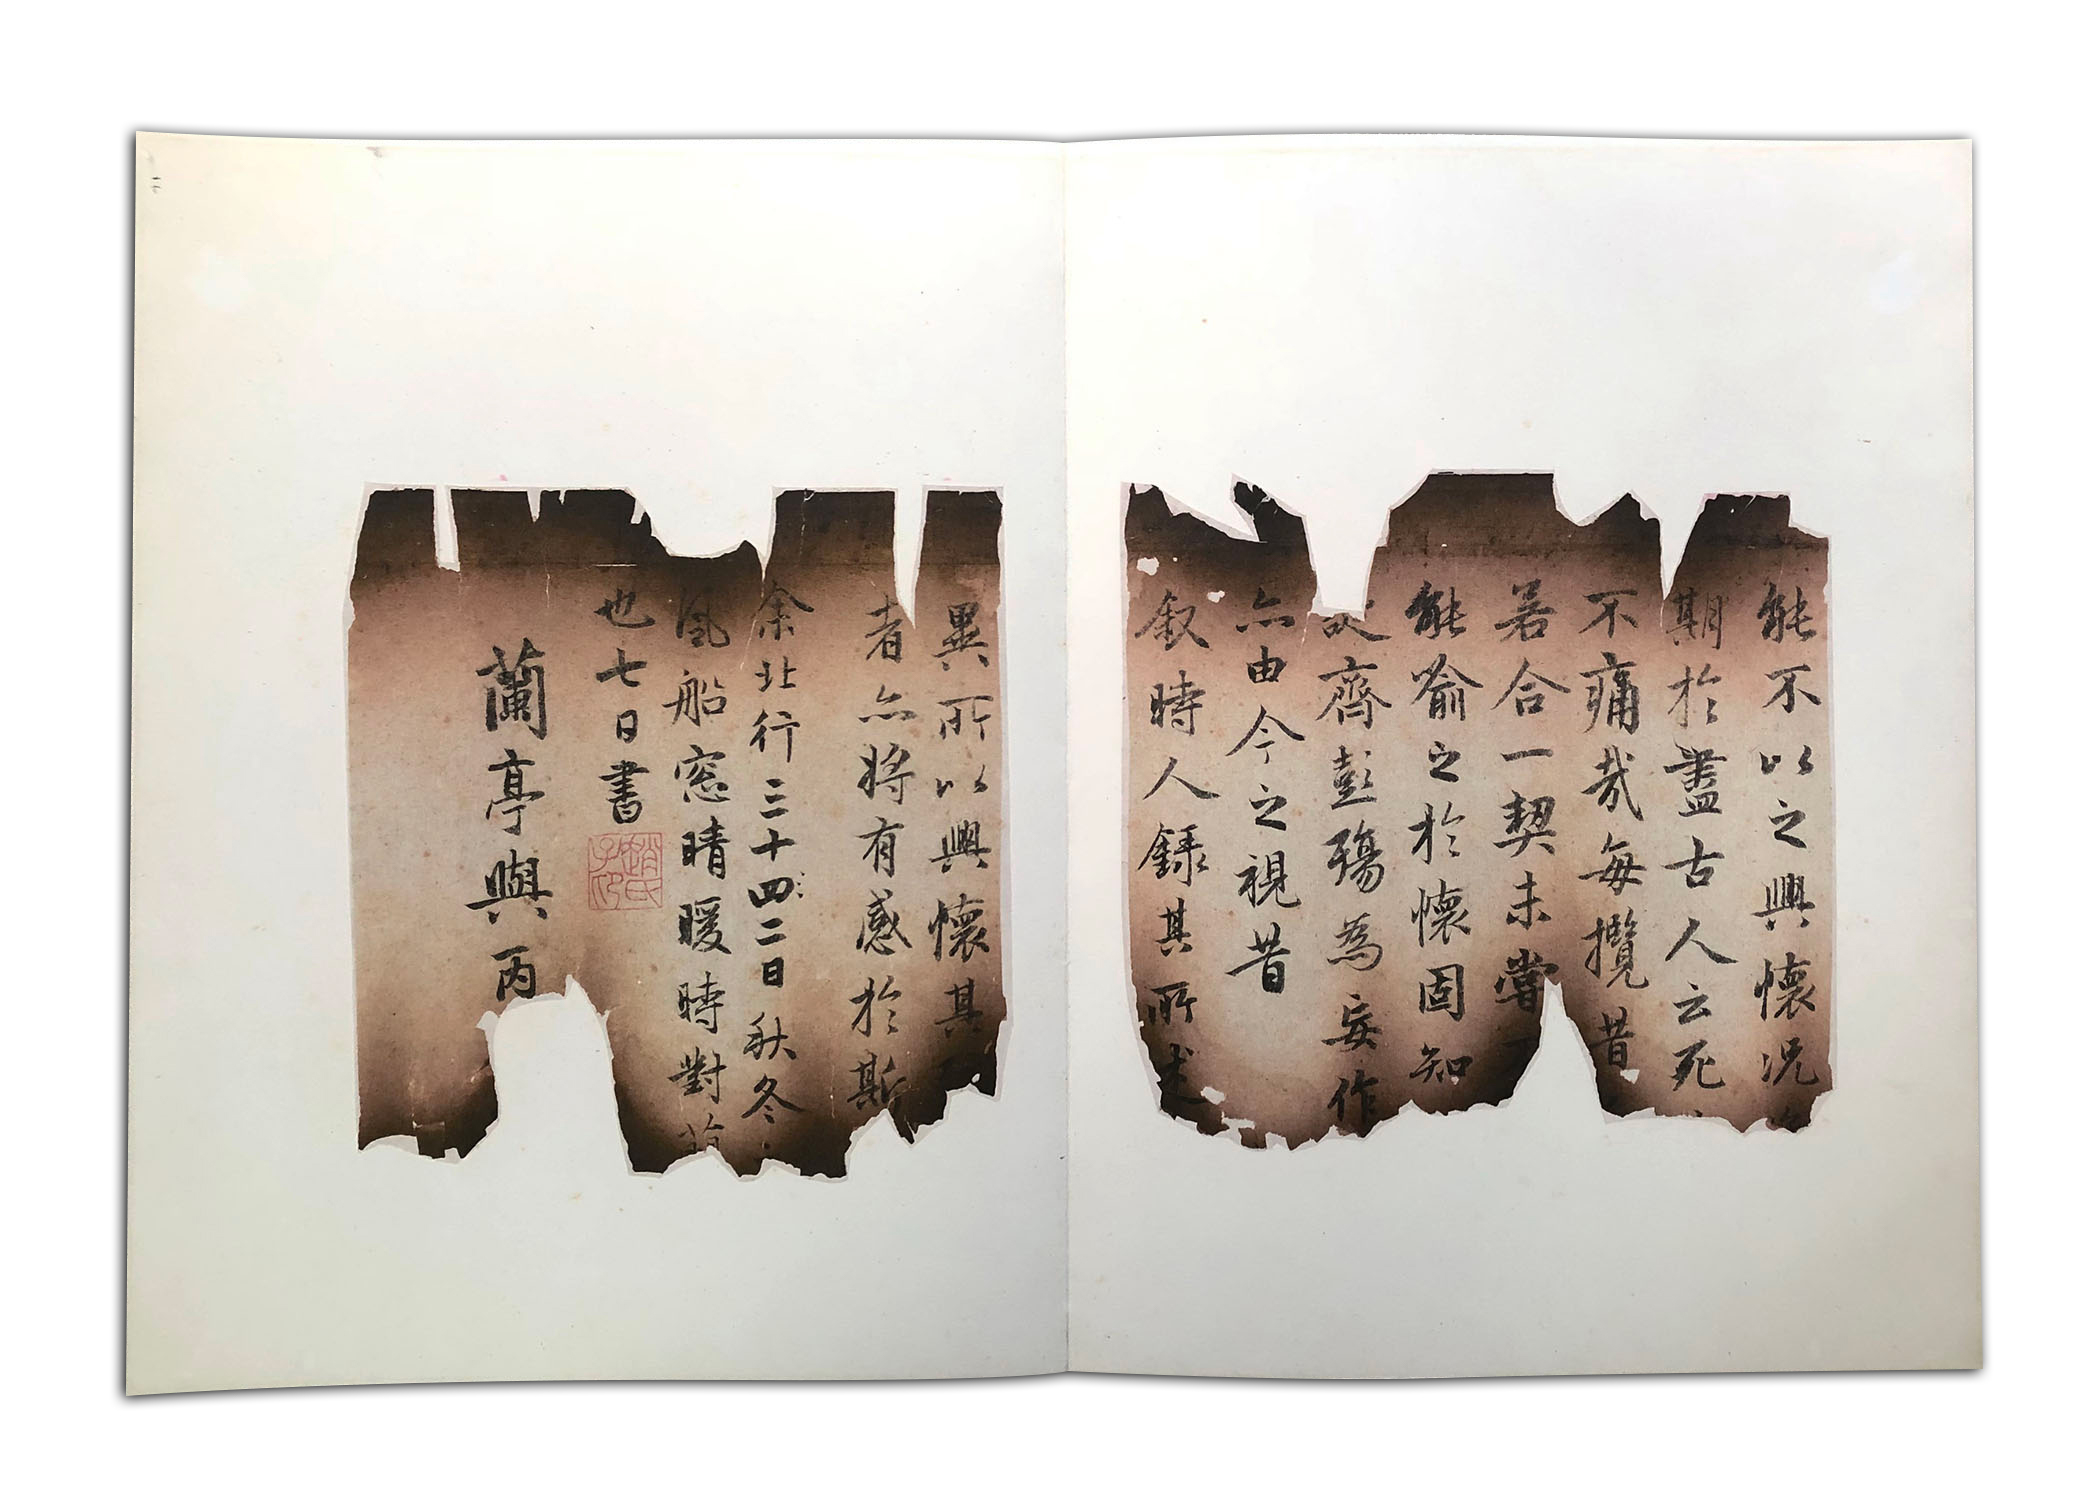 能不以之興懷況
期於盡古人云死
不痛哉每攬昔
若合一契未嘗
能喻之於懷固知
故齊彭殤為妄作
亦由今之視昔
叙時人錄其所述
異所以興懷其
者亦將有感於斯
余北行三十四二日秋冬
風船窓晴暖時對
也七日書
趙氏子印
蘭亭與丙